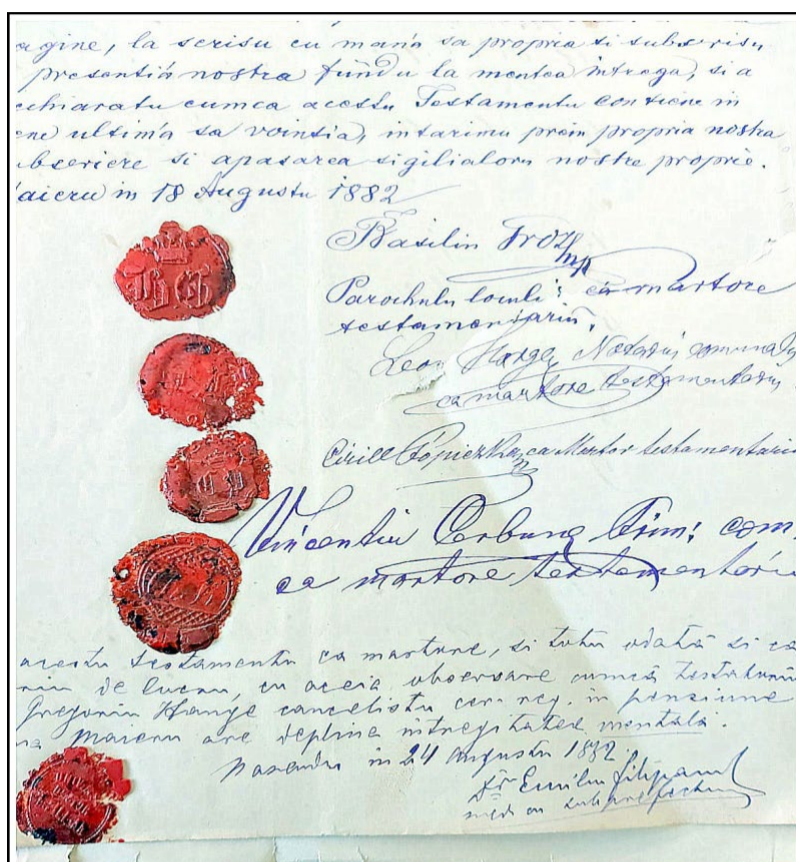 agine, la scrisu cu mana sa propria si subscrisu
presentiá nostra fundu la mentea intrega, si a
chiaratu cumca acestu Testamentu contiene in
ne ultimá sa vointia, intarimu prin propria nostra
bscriere si apasarea sigilialoru nostre proprie.
aieru in 18 Augustu 1882
Basiliu Groze
mp
Parochulu locului: ca martore
testamentariu,
Leon Hange, Notariu comunalu
ca martore testamentariu
Cirill ca Martor testamentariu
Vincentiu Prim: com.
ca martore testamentariu
acestu testamentu ca martore, si totu odată si ca
de lucru, cu aceia observare cumcă testatorulu
Gregoriu Hange cancelistu in pensiune
Maieru are deplina intregitatea mentală.
Nasaudu in 24 Augustu 1882.
Dr